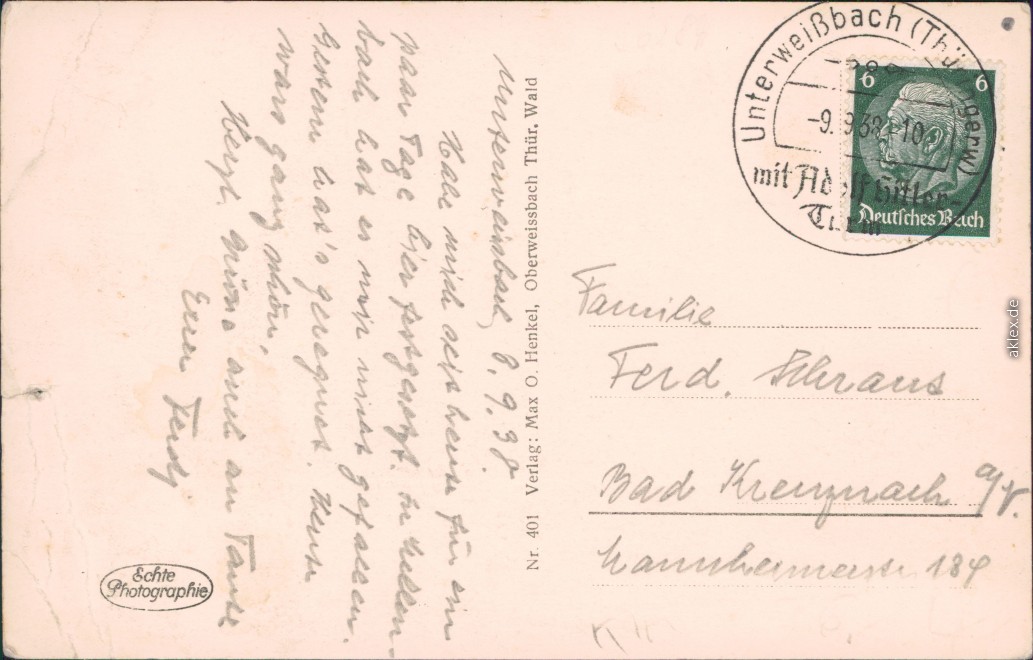 Unterweißbach, 8.9.38
Habe mich seit heute für ein
paar Tage hier festgesetzt. In Mellen-
bach hat es mir nicht gefallen.
Gestern hat's geregnet. Heute
wars ganz schön.
Herzl. Grüße auch an Tante
Euer Ferdy
Echte
Photographie
Nr. 401 Verlag: Max O. Henkel, Oberweissbach Thür. Wald
Unterweißbach (Thüringerw)
-9.9.38.-10
mit Adolf Hitler-
Turm
6 6
Deutsches Reich
Familie
Ferd. Schraus
Bad Kreuznach a/N.
Mannheimerstr 184
aklex.de